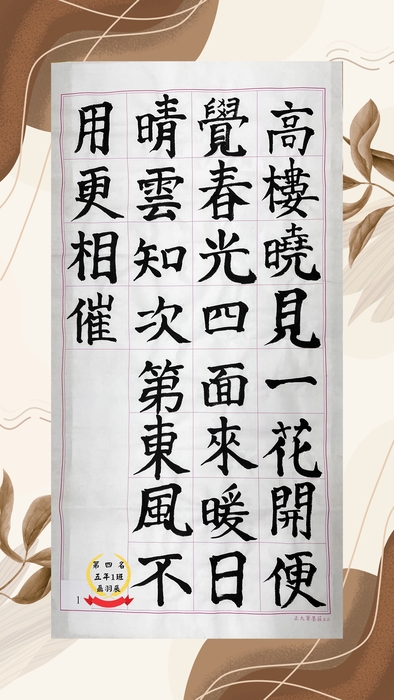 高樓曉見一花開便
覺春光四面來暖日
晴雲知次第東風不
用更相催
第四名
五年1班
聶羽辰
1